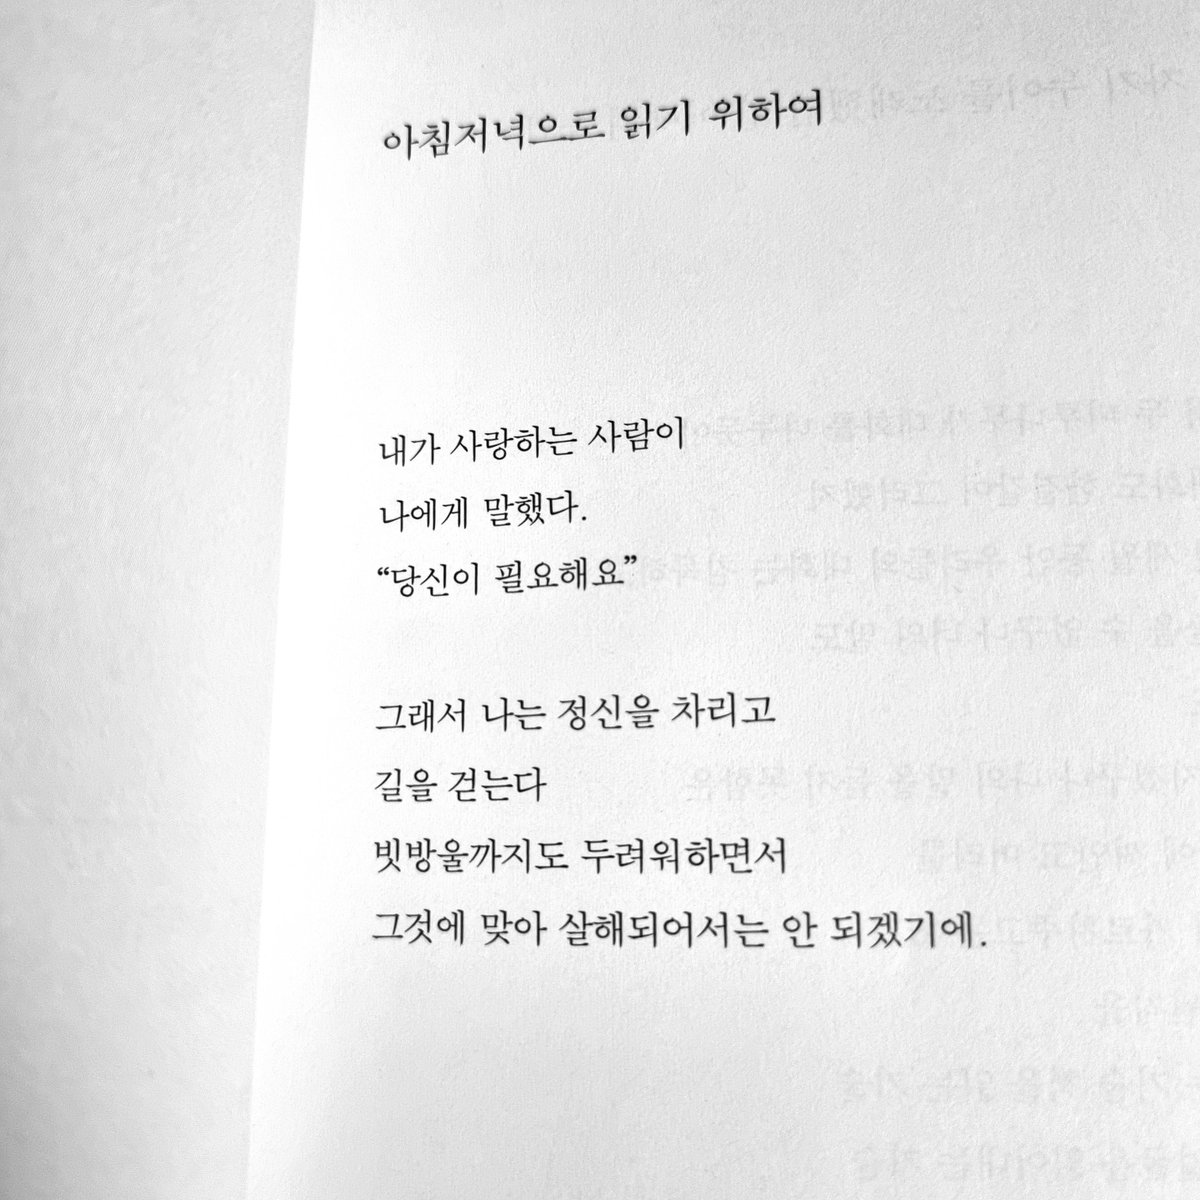 아침저녁으로 읽기 위하여
내가 사랑하는 사람이
나에게 말했다.
“당신이 필요해요”
그래서 나는 정신을 차리고
길을 걷는다
빗방울까지도 두려워하면서
그것에 맞아 살해되어서는 안 되겠기에.